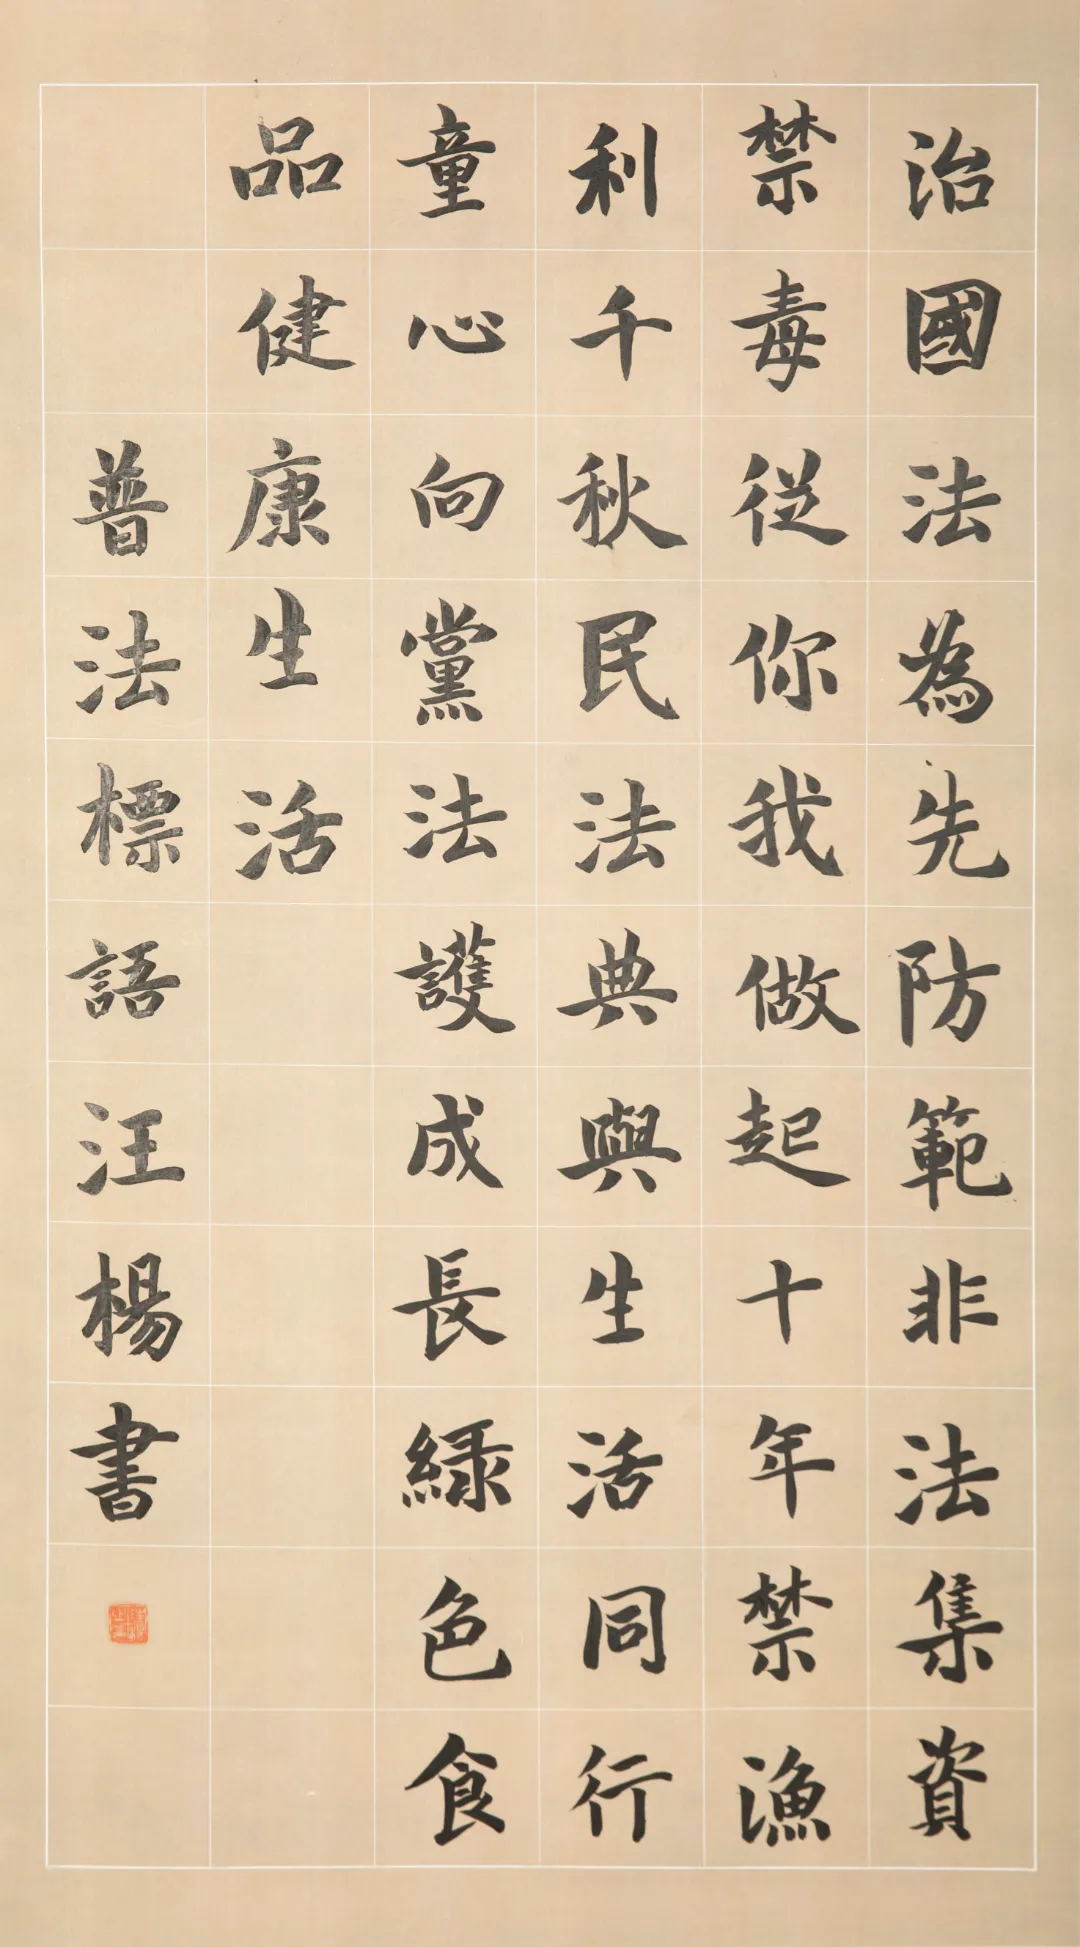 治國法為先防範非法集資
禁毒從你我做起十年禁漁
利千秋民法典與生活同行
童心向黨法護成長綠色食
品健康生活
普法標語汪楊書